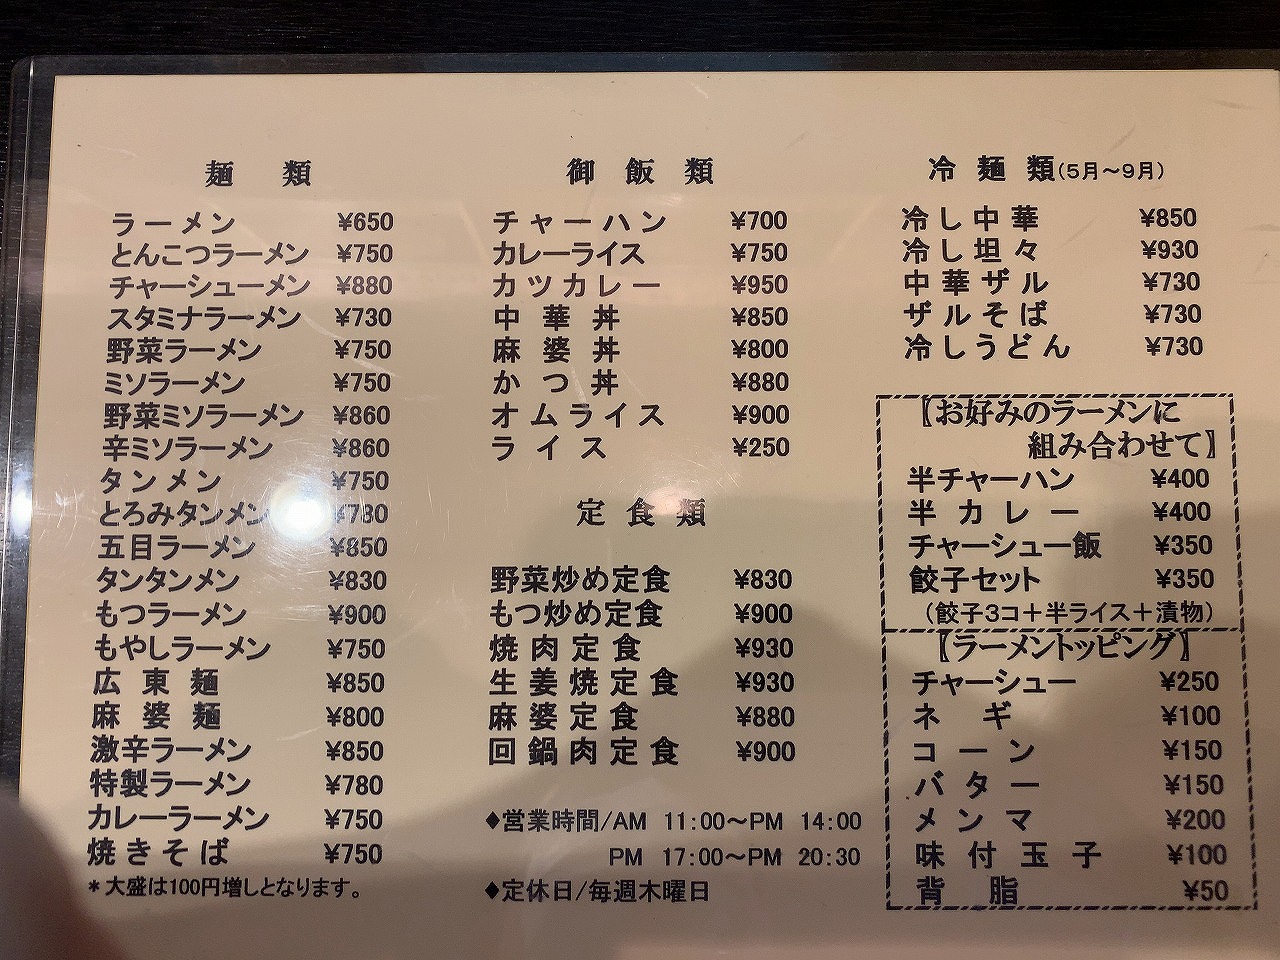 麺類
ラーメン ¥650
とんこつラーメン ¥750
チャーシューメン ¥880
スタミナラーメン ¥730
野菜ラーメン ¥750
ミソラーメン ¥750
野菜ミソラーメン ¥860
辛ミソラーメン ¥860
タンメン ¥750
とろみタンメン ¥780
五目ラーメン ¥850
タンタンメン ¥830
もつラーメン ¥900
もやしラーメン ¥750
広東麺 ¥850
麻婆麺 ¥800
激辛ラーメン ¥850
特製ラーメン ¥780
カレーラーメン ¥750
焼きそば ¥750
*大盛は100円増しとなります。
御飯類
チャーハン ¥700
カレーライス ¥750
カツカレー ¥950
中華丼 ¥850
麻婆丼 ¥800
かつ丼 ¥880
オムライス ¥900
ライス ¥250
定食類
野菜炒め定食 ¥830
もつ炒め定食 ¥900
焼肉定食 ¥930
生姜焼定食 ¥930
麻婆定食 ¥880
回鍋肉定食 ¥900
♦営業時間/AM 11:00～PM 14:00
PM 17:00～PM 20:30
♦定休日/毎週木曜日
冷麺類(5月～9月)
冷し中華 ¥850
冷し坦々 ¥930
中華ザル ¥730
ザルそば ¥730
冷しうどん ¥730
【お好みのラーメンに
組み合わせて】
半チャーハン ¥400
半カレー ¥400
チャーシュー飯 ¥350
餃子セット ¥350
(餃子3コ＋半ライス＋漬物)
【ラーメントッピング】
チャーシュー ¥250
ネギ ¥100
コーン ¥150
バター ¥150
メンマ ¥200
味付玉子 ¥100
背脂 ¥50